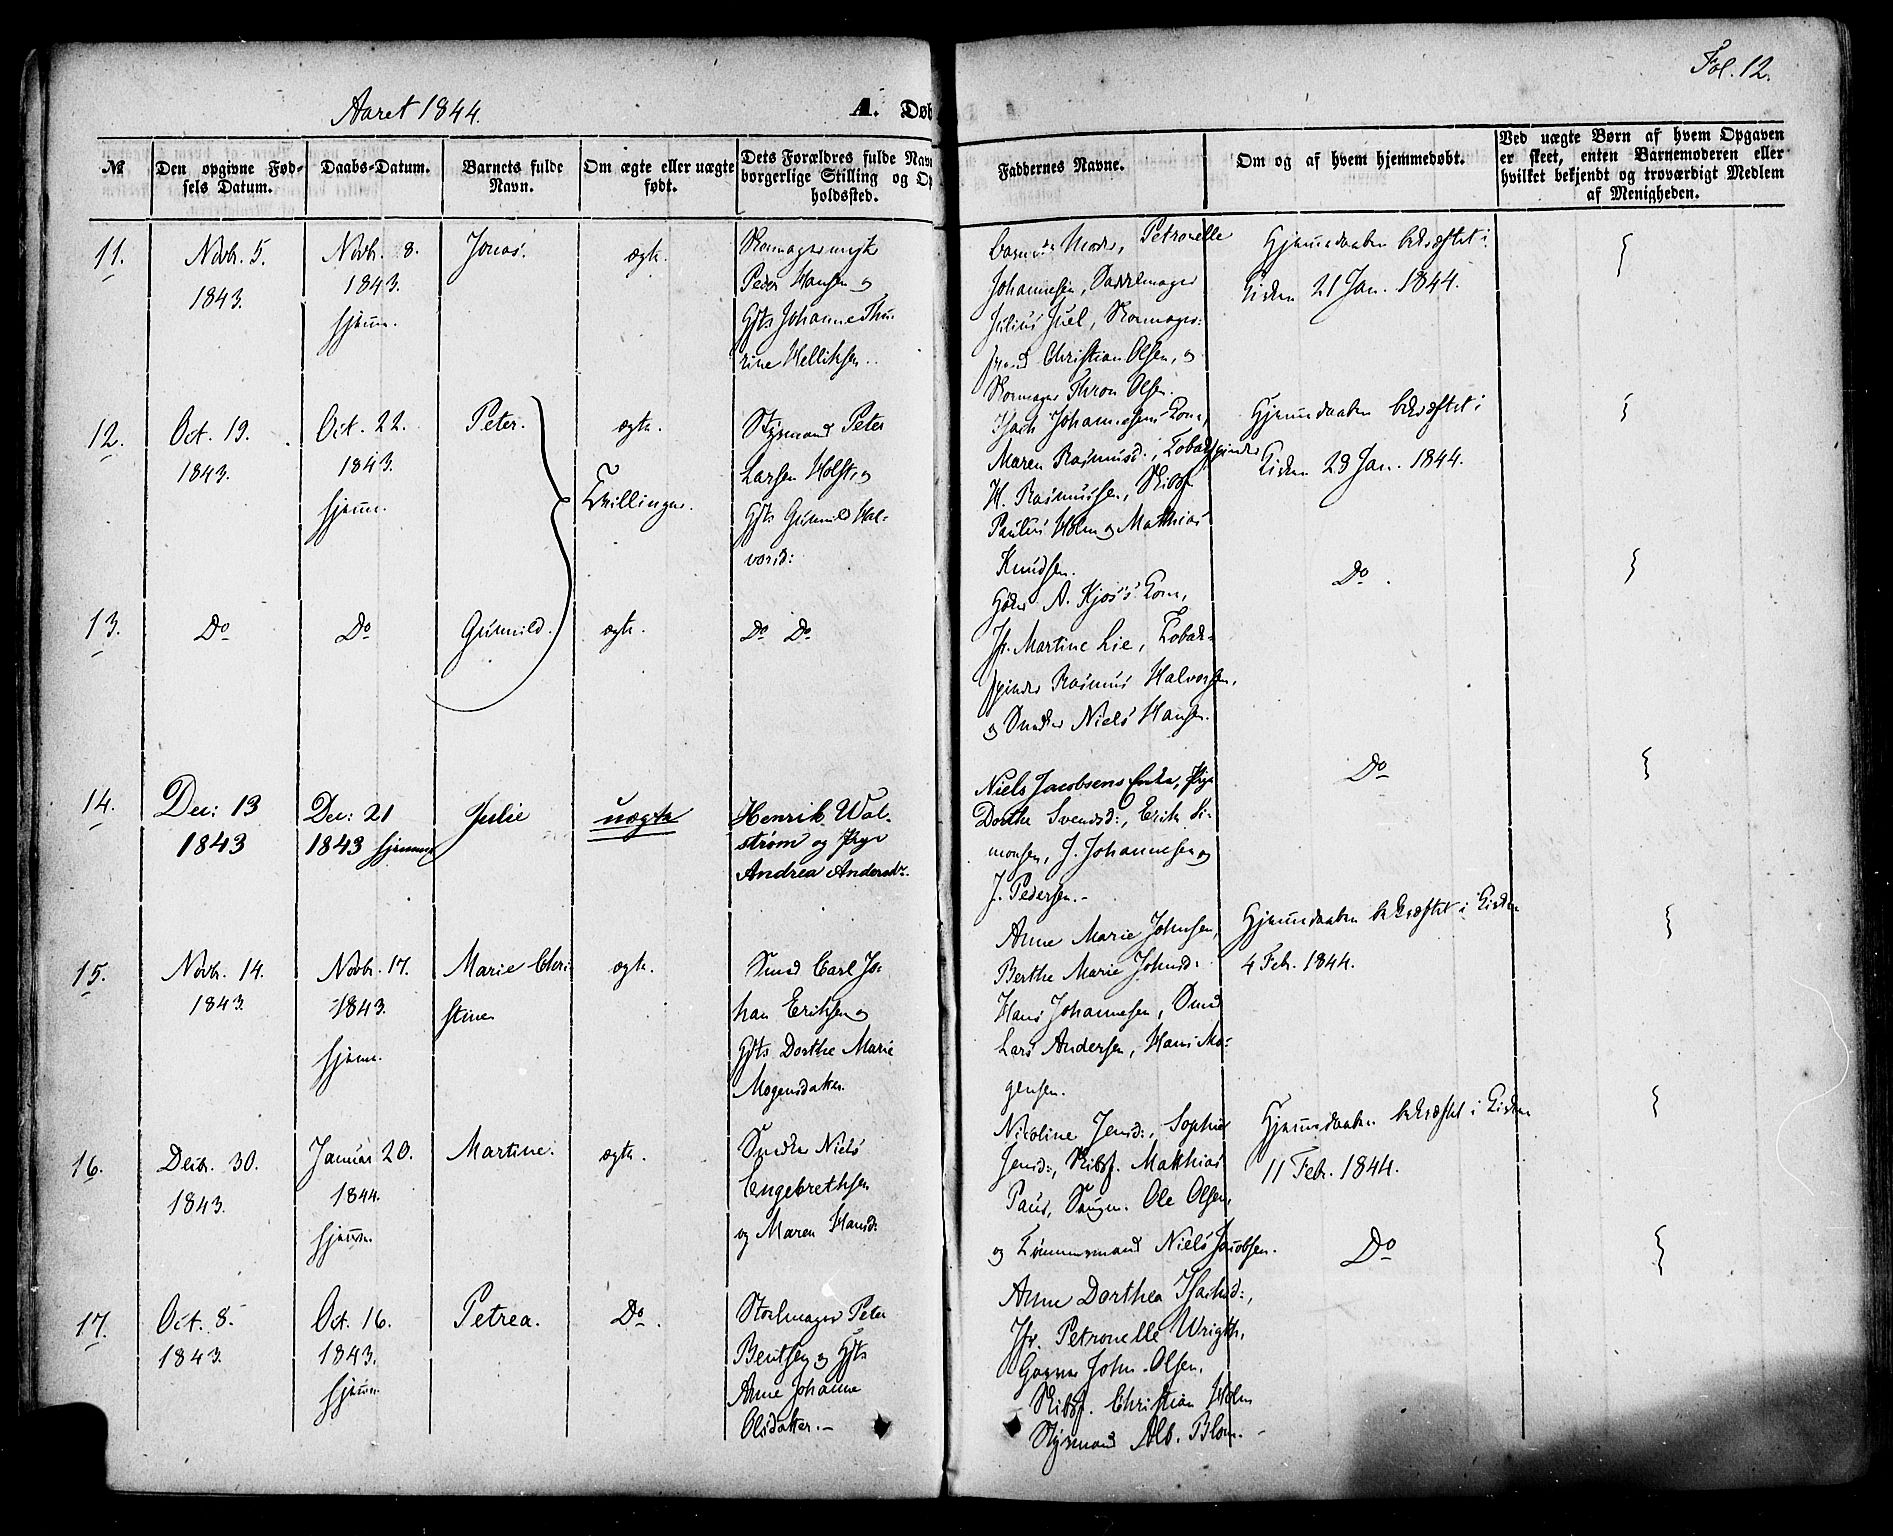 Fol. 12.
Aaret 1844.
A. Døb
№
Den opgivne Fød-
sels Datum.
Daabs-Datum.
Barnets fulde
Navn.
Om ægte eller uægte
født.
Dets Forældres fulde Navn
borgerlige Stilling og Op
holdssted.
Faddernes Navne.
Om og af hvem hjemmedøbt.
Ved uægte Børn af hvem Opgaven
er skeet, enten Barnemoderen eller
hvilket bekjendt og troværdigt Medlem
af Menigheden.
11.
Novbr. 5.
1843.
Novbr. 8.
1843.
hjemme.
Jonas.
ægte.
Skomagermester
Peder Hansen og
Gjts Johanne Thu-
rine Helliksen.
Moder, Petronelle
Johannesen, Sadelmager
Julius Juel, Skomager-
svend Christian Olsen, og
Skomager Thron Olsen.
Hjemmedaaben bekræftet i
Kirken 21 Jan. 1844.
12.
Oct. 19.
1843.
Oct. 22.
1843.
hjemme.
Peter.
ægte.
Tvillinger.
Styrmand Peter
Larsen Holst og
Gjts Gunnild Hal-
vorsd:
Isach Johannesens Kone,
Maren Rasmusd:, Tobakspinder
H. Rasmussen, Skibsf.
Paulus Holm og Matthias
Knudsen.
Hjemmedaaben bekræftet i
Kirken 29 Jan. 1844.
13.
Do
Do
Gunnild.
ægte.
Do Do
A. Kjos's Kone,
Jfr. Martine Lie, Tobak-
spinder Rasmus Halvorsen,
og Snedker Niels Hansen.
Do.
14.
Dec: 13
1843
Dec: 21
1843 hjemme
Julie
uægte
Henrik Wal-
strøm og Pige
Andrea Andersdr.
Niels Jacobsens Enke, Pige
Dorthe Svendsd:, Erik Si-
monsen, J. Johannesen og
J. Pedersen.-
Do
15.
Novbr. 14.
1843.
Novbr. 17.
1843.
hjemme.
Marie Chri-
stine
ægte.
Smed Carl Jo-
han Eriksen og
Gjts Dorthe Marie
Mogensdatter.
Anne Marie Johnsen,
Berthe Marie Johnsd:
Hans Johannesen, Smed
Lars Andersen, Hans Mo-
gensen.
Hjemmedaaben bekræftet i Kirken
4 Febr. 1844.
16.
Decbr. 30.
1843.
Januar 20.
1844.
hjemme.
Martine.
ægte.
Snedker Niels
Engebrethsen
og Maren Hansd:
Nicoline Jensd:, Sophie
Jensd:, Skibsf. Matthias
Paus, Ole Olsen,
og Tømmermand Niels Jacobsen.
Hjemmedaaben bekræftet i Kirken
11 Febr. 1844.
17.
Oct. 8.
1843.
Oct. 16.
1843.
hjemme
Petrea.
Do.
Stolmager Peter
Bentsen og Gjts
Anne Johanne
Olsdatter.-
Anne Dorthea Isachsd:,
Jfr. Petronelle Wrigth,
Garver John Olsen,
Skibsf. Christian Holm
Styrmand Alb. Blom.-
Do